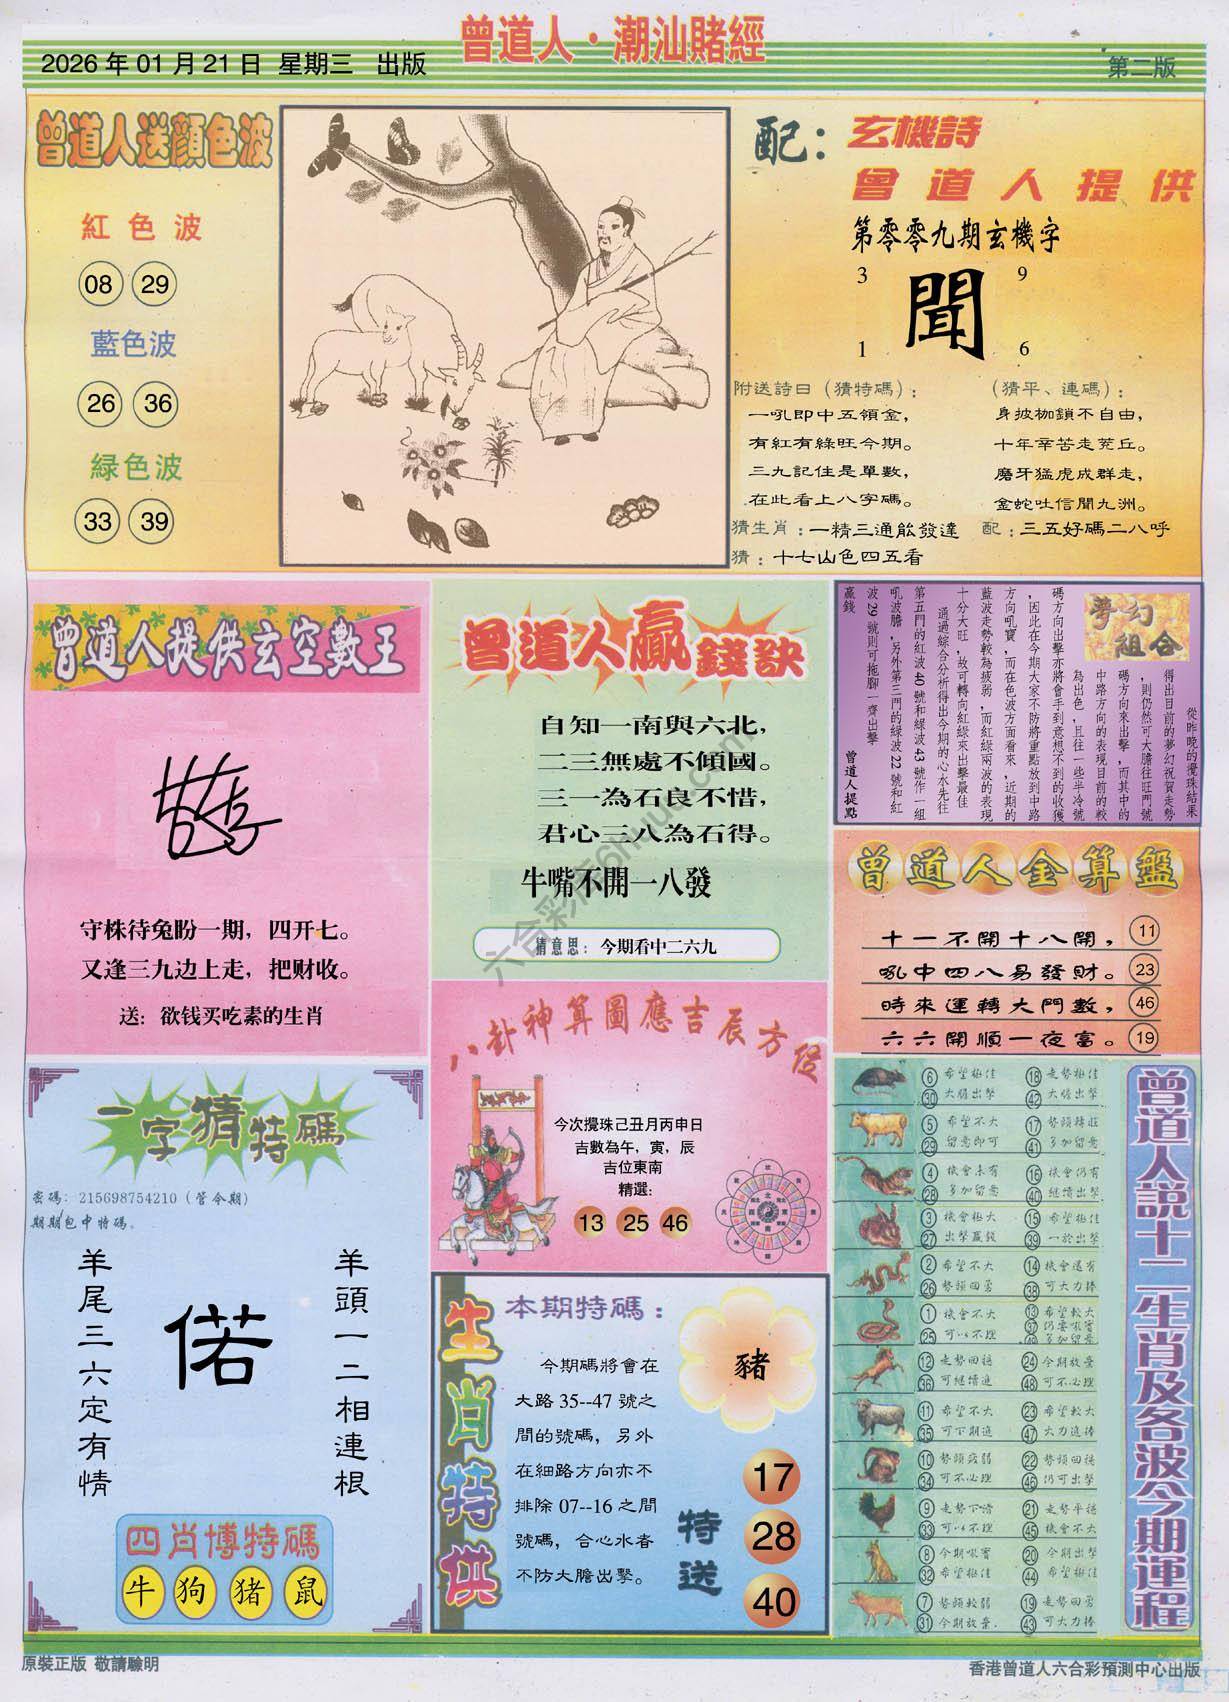 曾道人·潮汕賭經
2026年01月21日 星期三 出版
第二版
曾道人送顏色波
紅色波
08 29
藍色波
26 36
緑色波
33 39
配：玄機詩
曾道人提供
第零零九期玄機字
3 9
聞
1 6
附送詩曰（猜特碼）：
一吼即中五領金，
有紅有綠旺今期。
三九記住是單數，
在此看上八字碼。
（猜平、連碼）：
身披枷鎖不自由，
十年辛苦走荒丘。
磨牙猛虎成群走，
金蛇吐信聞九洲。
猜生肖：一精三通能發達
配：三五好碼二八呼
猜：十七山色四五看
曾道人提供玄空數王
守株待兔盼一期，四开七。
又逢三九边上走，把财收。
送：欲钱买吃素的生肖
曾道人贏錢訣
自知一南與六北，
二三無處不傾國。
三一為石良不惜，
君心三八為石得。
牛嘴不開一八發
猜意思：今期看中二六九
夢幻組合
從昨晚的攪珠結果
得出目前的夢幻祝賀走勢
，則仍然可大膽往旺門號
碼方向來出擊，而其中的
中路方向的表現目前的較
為出色，且往一些半冷號
碼方向出擊亦將會手到意想不到的收獲
，因此在今期大家不防將重點放到中路
方向吼寶，而在色波方面看來，近期的
藍波走勢較為疲弱，而紅綠兩波的表現
十分大旺，故可轉向紅綠來出擊最佳
通過綜合分析得出今期的心水先往
第五門的紅波40號和緑波43號作一組
吼波膽，另外第三門的綠波22號和紅
波29號則可拖腳一齊出擊
贏錢
曾道人提點
曾道人金算盤
十一不開十八開， 11
吼中四八易發財。 23
時來運轉大門數， 46
六六開順一夜富。 19
八卦神算圖應吉辰方位
今次攪珠己丑月丙申日
吉數為午，寅，辰
吉位東南
精選：
13 25 46
一字猜特碼
密碼：215698754210（管令期）
期期包中特碼。
羊頭一二相連根
偌
羊尾三六定有情
四肖博特碼
牛 狗 猪 鼠
生肖特供
本期特碼：
今期碼將會在
大路35--47號之
間的號碼，另外
在細路方向亦不
排除07--16之間
號碼，合心水者
不防大膽出擊。
豬
特送
17
28
40
曾道人説十二生肖及各波今期運程
6 希望極佳 18 走勢極佳
30 大膽出擊 42 大膽出擊
5 希望不大 17 勢頭轉旺
29 留意即可 41 多加留意
4 機會未有 16 機會仍有
28 多加留意 40 繼續出擊
3 機會極大 15 希望極佳
27 出擊贏錢 39 一於出擊
2 希望不大 14 機會還有
26 勢頭回勇 38 可大力捧
1 機會不大 13 希望較大
25 可以不理 37 仍要吼實
多加留意
12 走勢回穩 24 今期放棄
36 可繼續進 48 可不必理
11 希望不大 23 希望較大
35 可下期進 47 大力進捧
10 勢頭疲弱 22 勢頭回穩
34 可不必理 46 仍可出擊
9 走勢下滑 21 走勢平穩
33 可以不理 45 機會不大
8 今期吼實 20 今期出擊
32 希望極佳 44 希望極佳
7 勢頭較弱 19 走勢回勇
31 今期放棄. 43 可大力捧
六合彩库6huu.com
原裝正版 敬請驗明
香港曾道人六合彩預測中心出版